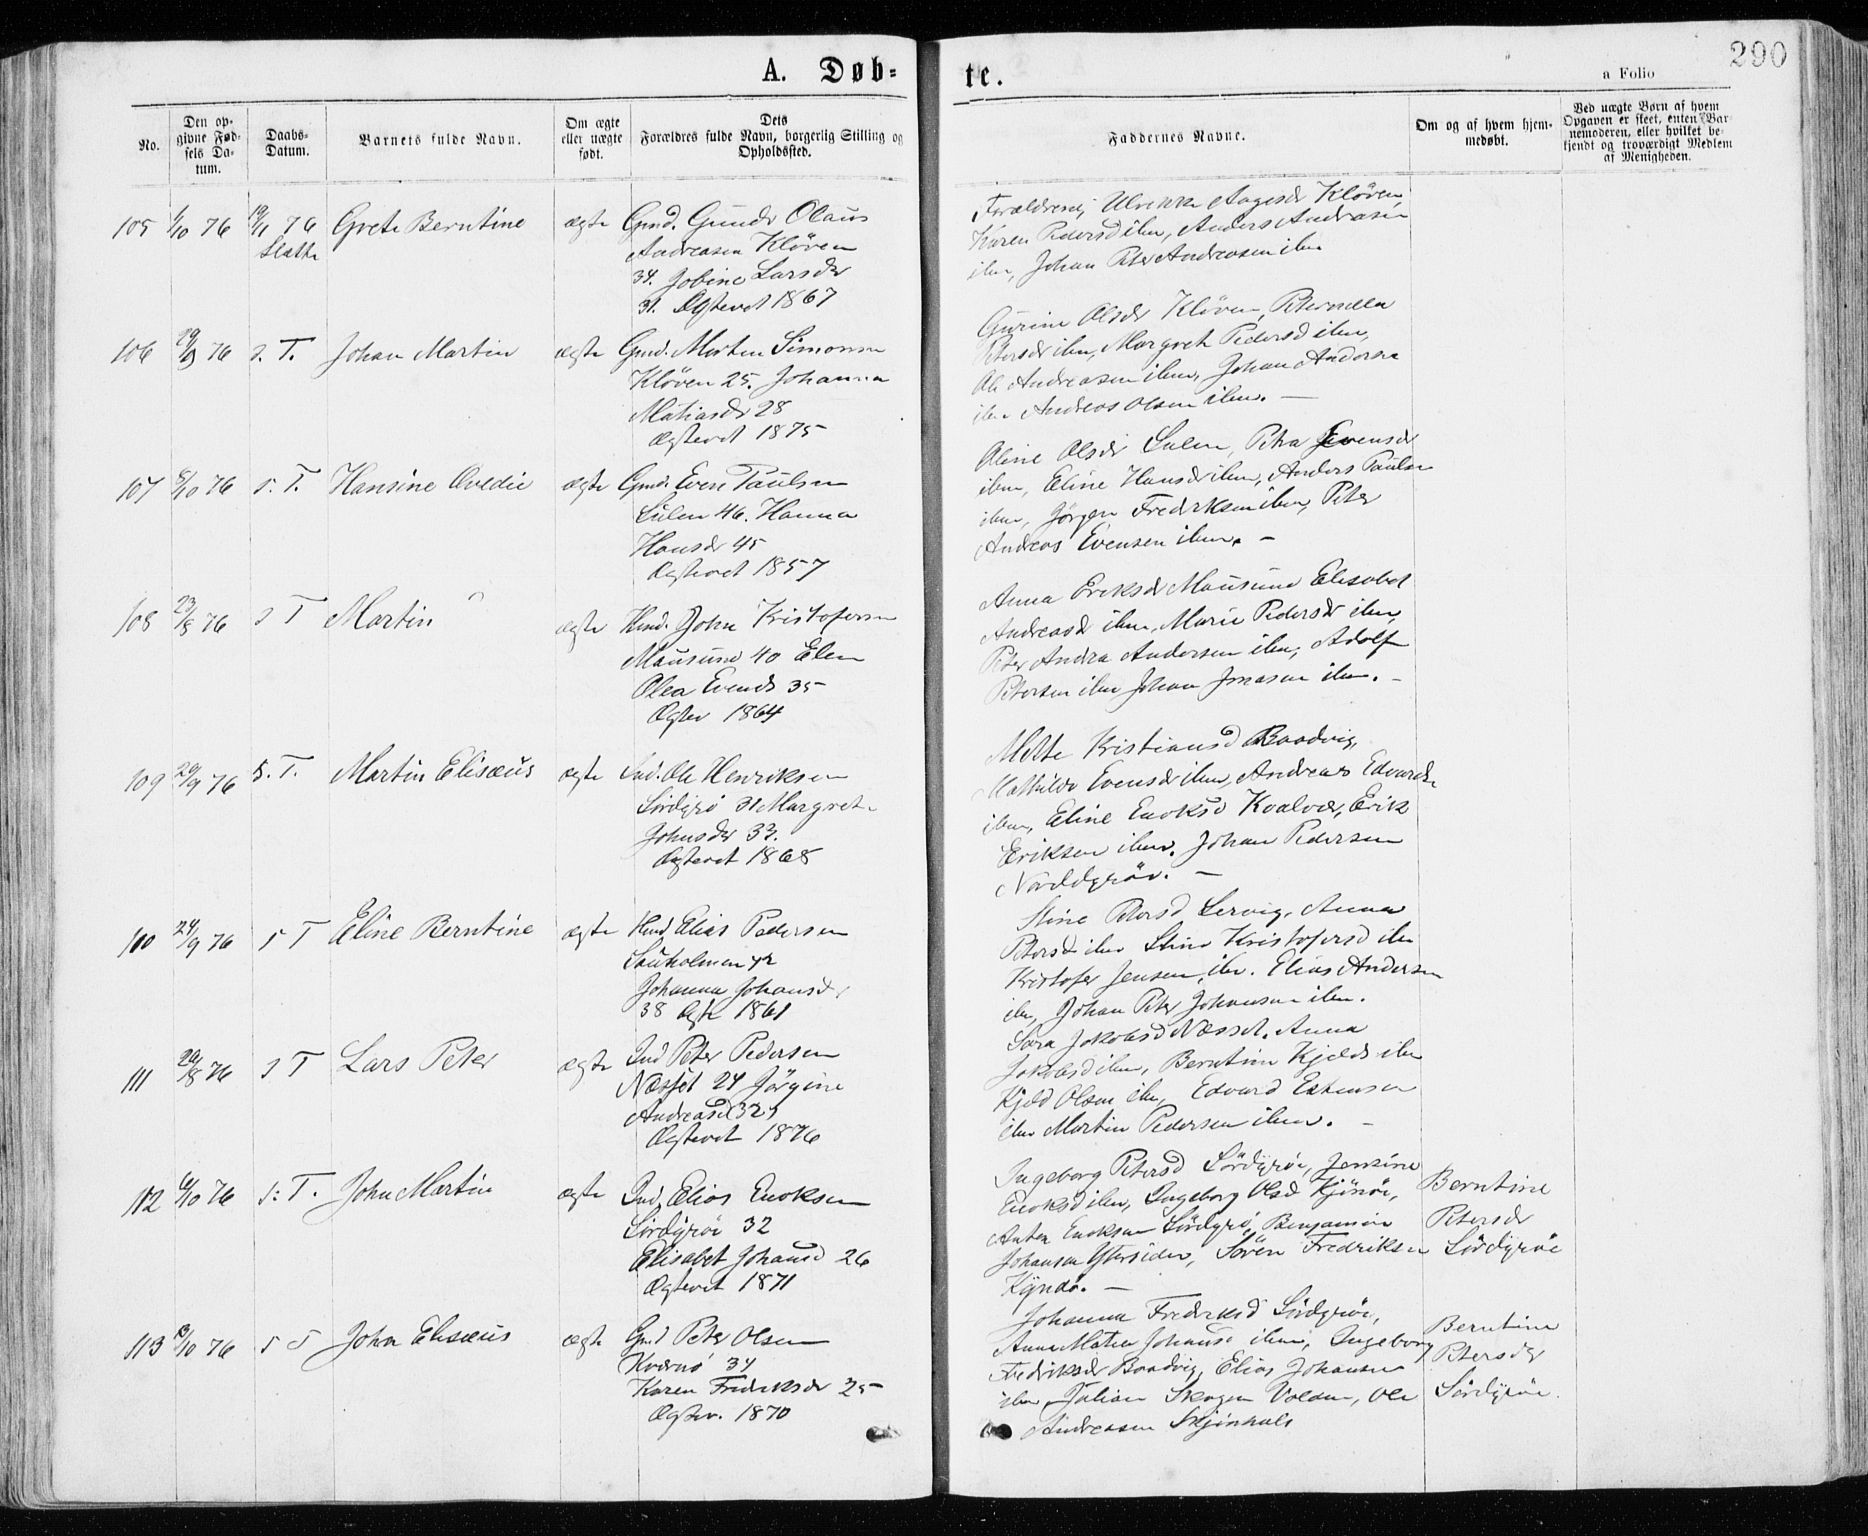 290
A. Døb-
te.
a Folio
No.
Den op-
givne Fød-
sels Da-
tum.
Daabs-
Datum.
Barnets fulde Navn.
Om ægte
eller uægte
født.
Dets
Forældres fulde Navn, borgerlig Stilling og
Opholdssted.
Faddernes Navne.
Om og af hvem hjem-
medøbt.
Ved uægte Børn af hvem
Opgaven er skeet, enten Bar-
nemoderen, eller hvilket be-
kjendt og troværdigt Medlem
af Menigheden.
105 1/10 76 19/11 76 Grete Berntine ægte Gmd. Gunder Olaus
Sletta
Andreasen Kløven
34. Jobine Larsdr
31. Ægteviet 1867
Forældrene, Ulrikke Aagesdr Kløven,
Karen Pedersd ibm, Anders Andreasen
ibm, Johan Peter Andreasen ibm
106 76 s. T. Johan Martin ægte Gmd. Morten Simonsen
Kløven 25. Johanna
Matiasdr 28
Ægteviet 1875
Gurine Olsdr Kløven, Peternella
Petersdr ibm, Margret Pedersd ibm,
Ole Andreasen ibm, Johan Andersen
ibm Andreas Olsen ibm. —
107 8/10 76 s. T. Hansine Ovedie ægte Gmd. Even Paulsen
Sulen 46. Hanna
Hansdr 45
Ægteviet 1857
Oline Olsdr Sulen, Petra Evensdr
ibm, Eline Hansdr ibm, Anders Paulsen
ibm, Jörgen Fredriksen ibm, Peter
Andreas Evensen ibm. —
108 23/8 76 s T Martin ægte Hmd. John Kristofersen
Mausund 40 Elen
Olea Evensd 35
Ægtev 1864
Anna Eriksdr Mausund Elisabet
Andreasdr ibm, Marie Pedersdr ibm,
Peter Andrea Andersen ibm, Adolf
Petersen ibm Johan Jonasen ibm. —
109 29/9 76 s. T. Martin Elisæus ægte Ind. Ole Henriksen
Sördyrö 31 Margrete
Johnsdr 33.
Ægteviet 1868
Mette Kristiansd Boadvig,
Mathilde Evensdr ibm, Andreas Edvards.
ibm, Eline Enoksd Kvalvær, Erik
Eriksen ibm. Johan Pedersen
Norddyröi. —
110 24/9 76 s T Eline Berntine ægte Hmd Elias Pedersen
Sauholmen 42
Johanna Johansdr
38 Ægte 1861
Stine Petersd Lervig, Anna
Petersd ibm Stine Kristofersd ibm
Kristofer Jensen, ibm. Elias Andersen
ibm, Johan Peter Johansen ibm.
111 20/8 76 s T Lars Peter ægte Ind Peter Pedersen
Næsset 24 Jörgine
Andreasd (32)
Ægteviet 1876
Sara Jakobsd Næsset. Anna
Jakobsd ibm, Berntine Kjelds ibm
Kjeld Olsen ibm, Edvard Estensen
ibm Martin Pedersen ibm. —
112 6/10 76 s: T. John Martin ægte Ind. Elias Enoksen
Sördyröi 32
Elisabet Johansd 26
Ægteviet 1871
Ingeborg Petersd Sördyröi, Jensine
Enoksd ibm, Ingeborg Olsd Kjönöi,
Anton Enoksen Sördyrö, Benjamin
Johansen Ytersiden, Sören Fredriksen
Kyndö. —
Berntine
Petersdr
Sördyröi
113 13/10 76 s T John Elisæus ægte Gmd Peter Olsen
Kværnö 34
Karen Fredriksdr 25
Ægtev. 1870
Johanna Fredriksd Sördyröi,
Anna Matea Johansd ibm, Ingeborg
Fredriksdr Boadvig, Elias Johansen
ibm, Julian Skogen Volden, Ole
Andreasen Skjönhals
Berntine
Petersdr
Sördyröi.